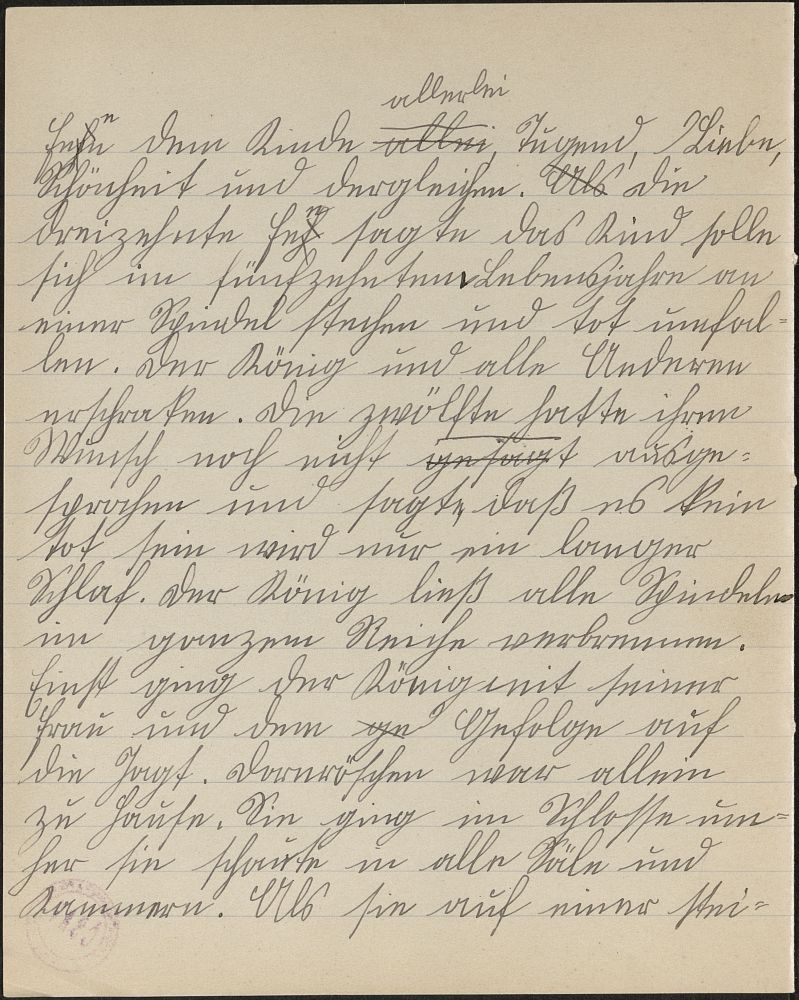 allerlei
Feen dem Kinde allei, Tugend, Liebe,
Schönheit und dergleichen. Als die
dreizehnte Feen sagte das Kind solle
sich im fünfzehntem Lebensjahre an
einer Spindel stechen und tot umfal=
len. Der König und alle Anderen
erschraken. Die zwölfte hatte ihren
Wunsch noch nicht gesagt ausge=
sprochen und sagte, daß es kein
tot sein wird nur ein langer
Schlaf. Der König ließ alle Spindeln
im ganzem Reiche verbrennen.
Einst ging der König mit seiner
Frau und dem ge Gefolge auf
die Jagt. Dornröschen war allein
zu Hause. Sie ging im Schlosse um=
her sie schaute in alle Säle und
Kammern. Als sie auf einer stei=